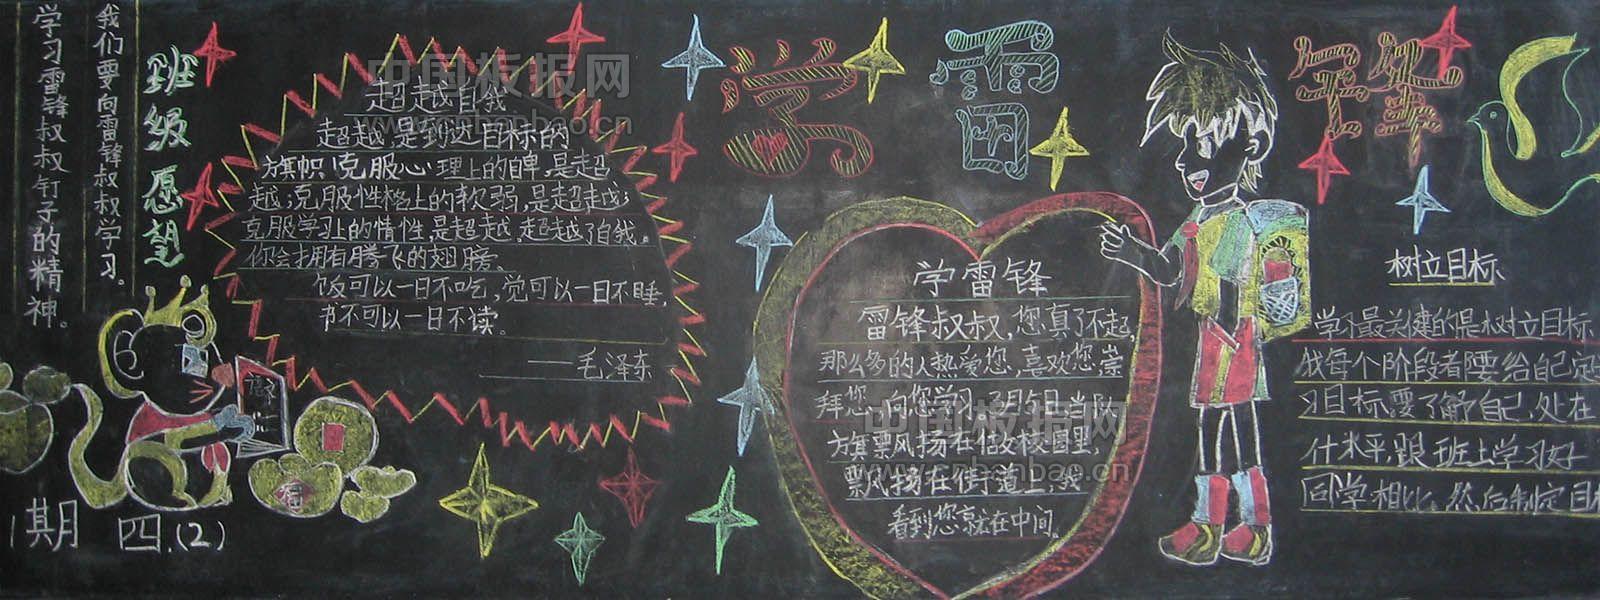 学雷锋
班级愿望
我们要向雷锋叔叔学习。
学习雷锋叔叔钉子的精神。
超越自我
超越,是到达目标的
旗帜!克服心理上的自卑,是超
越;克服性格上的软弱,是超越;
克服学习上的惰性,是超越。超越了自我。
你会拥有腾飞的翅膀。
饭可以一日不吃,觉可以一日不睡,
书不可以一日不读。
——毛泽东
期 四.(2)
福
学雷锋
雷锋叔叔,您真了不起,
那么多的人热爱您,喜欢您崇
拜您,向您学习。3月5日,当队
旗飘扬在
校园里,
飘扬在街道上,我
看到您就在中间。
树立目标
学习最关键的是树立目标
我每个阶段都要给自己定
习目标,要了解自己,处在
什水平,跟班上学习好
同学相比,然后制定目标
中国板报网
www.cnbanbao.cn
中国板报网
www.cnbanbao.cn